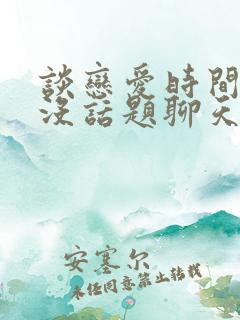 談戀愛時間
沒話題聊天
安塞尔
未任同意禁止轉載